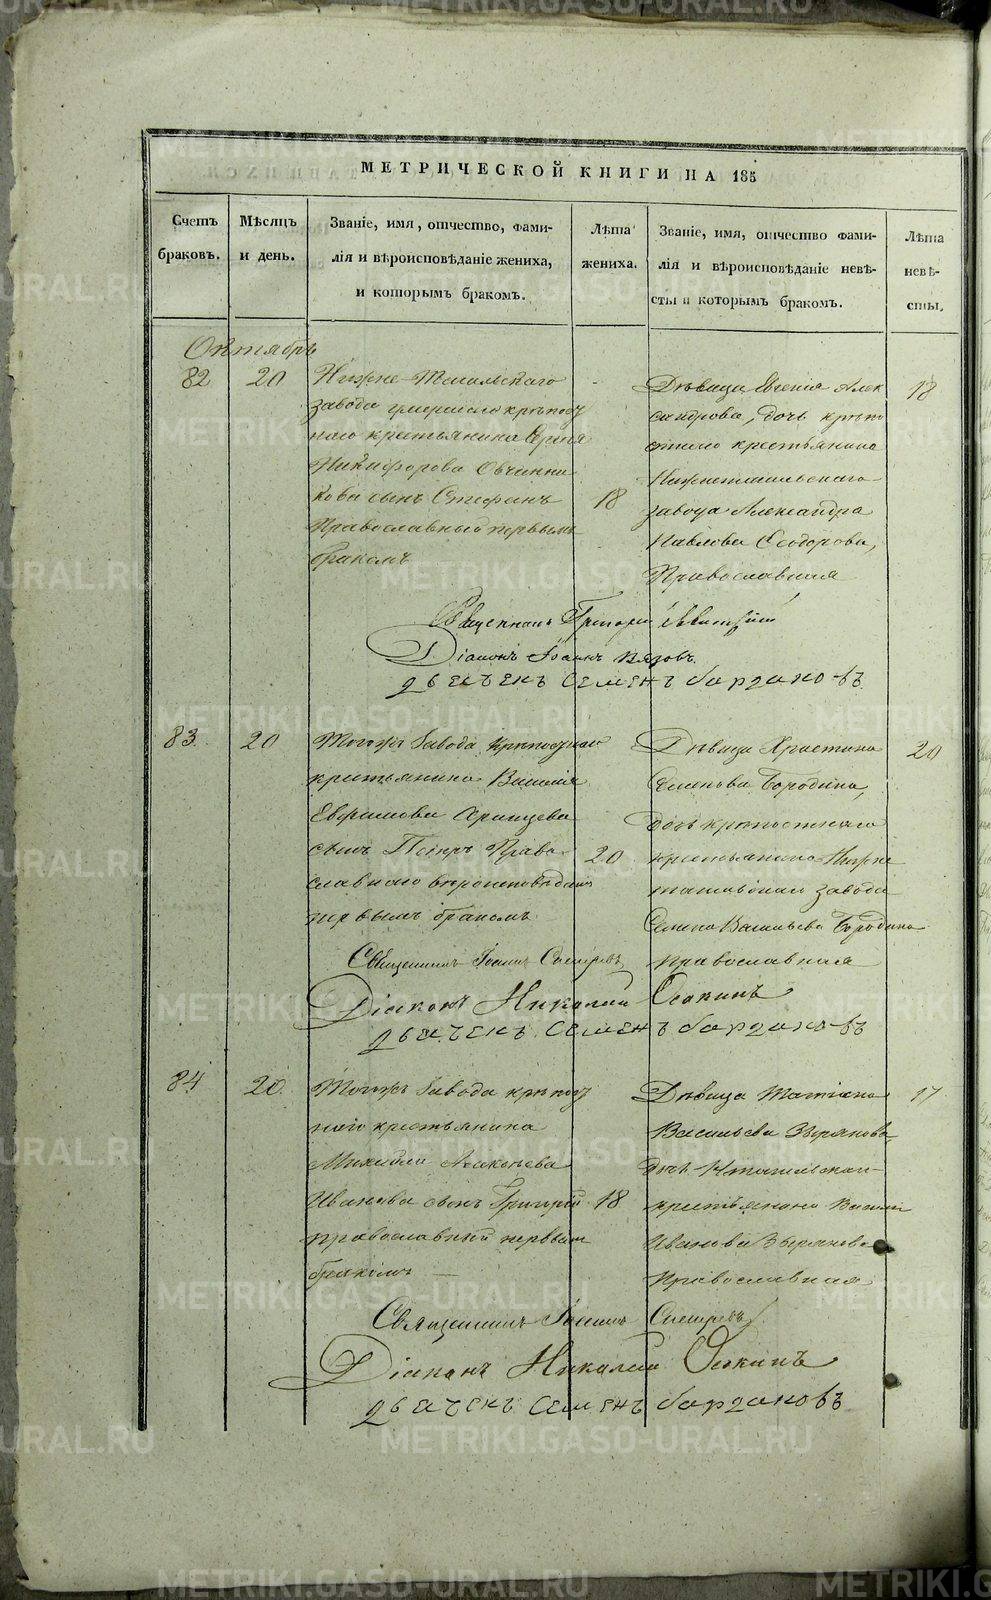 МЕТРИЧЕСКОЙ КНИГИ НА 185
Счетъ браковъ.
Мѣсяцъ и день.
Званіе, имя, отчество, фами-
лія и вѣроисповѣданіе жениха,
и которымъ бракомъ.
Лѣта жениха.
Званіе, имя, отчество фами-
лія и вѣроисповѣданіе невѣ-
сты и которымъ бракомъ.
Лѣта невѣ-
сты.
Октябрь
82
20
Нижне-Тагильскаго
завода крѣпост
наго крестьянина Сергія
Никифорова Овчинни
кова сынъ Стефанъ
Православный первымъ
бракомъ
18
Дѣвица Евгенія Алек
сандрова, дочь крѣпо
стнаго крестьянина
Нижнетагильскаго
завода Александра
Павлова Ѳедорова,
Православная
18
Священникъ Григорій
Діаконъ Іоаннъ
дьячекъ Семенъ
83
20
Тогожъ Завода Крѣпостнаго
крестьянина Василія
сынъ Петръ Право
славнаго вѣроисповѣданія
первымъ бракомъ
20
Дѣвица Христина
Семенова Бородина,
дочь крѣпостнаго
крестьянина Нижне
тагильскаго завода
Семена Васильева Бородина
православная
20
Священникъ Іоаннъ
Діаконъ Николай
дьячекъ Семенъ
84
20
Тогожъ Завода крѣпост
наго крестьянина
Михаила
Иванова сынъ Григорій
православный первымъ
бракомъ
18
Дѣвица Татіана
Васильева Зырянова
дочь Нтагильскаго
крестьянина Василія
Иванова Зырянова
Православная
17
Священникъ Іоаннъ
Діаконъ Николай
дьячекъ Семенъ
METRIKI.GASO-URAL.RU